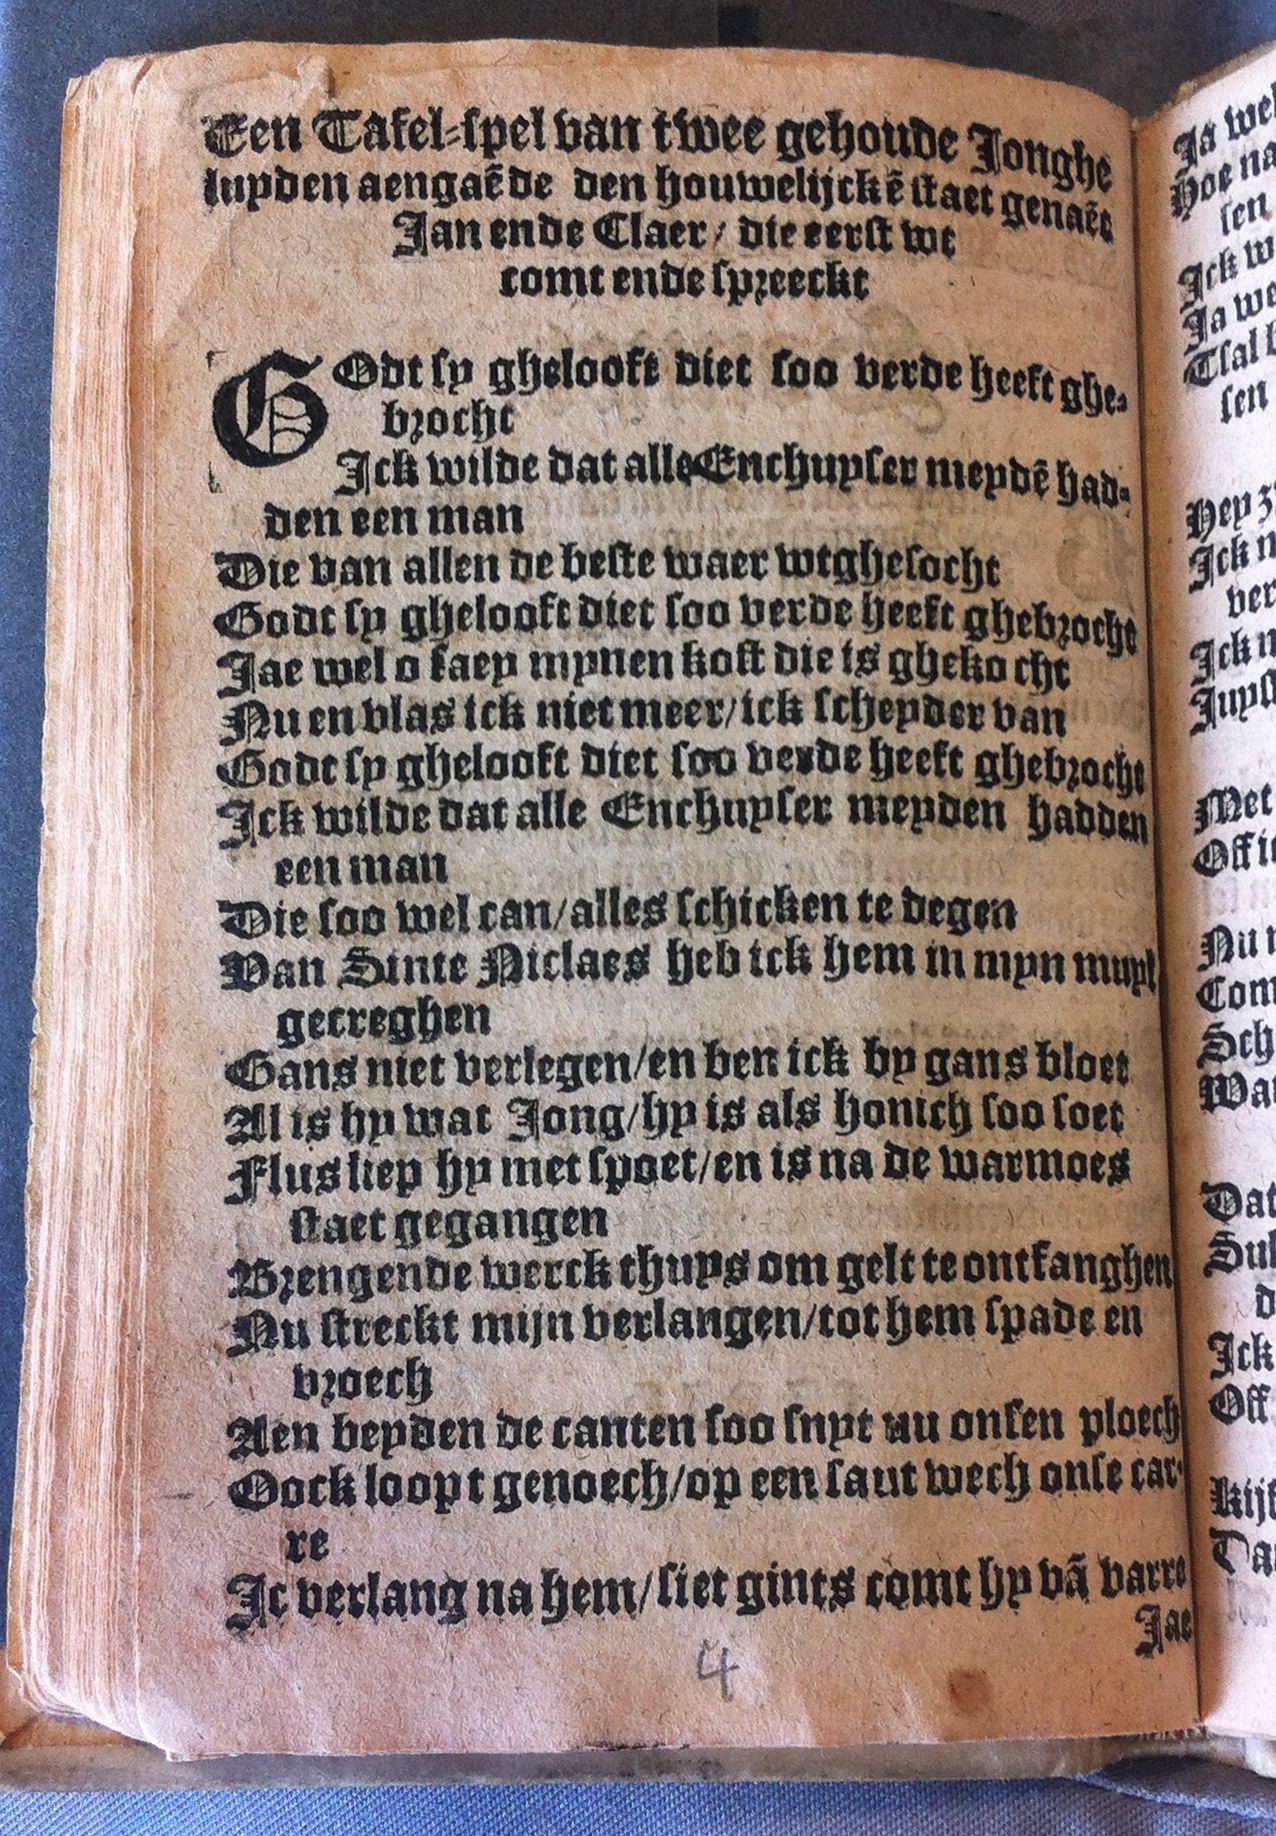 Een Tafel-spel van twee gehoude Jonghe
luyden aengaẽde den houwelijckẽ staet genaẽt
Jan ende Claer / die eerst wt
comt ende spreeckt
GOdt sy ghelooft diet soo verde heeft ghe-
brocht
Ick wilde dat alle Enchuyser meydẽ had-
den een man
Die van allen de beste waer wtghesocht
Godt sy ghelooft diet soo verde heeft ghebrocht
Jae wel o kaey mynen kost die is ghekocht
Nu en vlas ick niet meer/ick scheyder van
Godt sy ghelooft diet soo verde heeft ghebrocht
Ick wilde dat alle Enchuyser meyden hadden
een man
Die soo wel can/alles schicken te degen
Van Sinte Niclaes heb ick hem in myn muyl
gecreghen
Gans niet verlegen/en ben ick by gans bloet
Al is hy wat Jong/hy is als honich soo soet
Flus liep hy met spoet/en is na de warmoes
staet gegangen
Brengende werck thuys om gelt te ontfanghen
Nu streckt mijn verlangen/tot hem spade en
vroech
Aen beyden de canten soo snyt nu onsen ploech
Oock loopt genoech/op een saut wech onse car-
re
Ic verlang na hem/siet gints comt hy vã varre
Jae
4
Ja wel
Hoe na
sen
Ick w
Ja we
Tsal
sen
Hey
Ick n
ver
Ick n
Juyst
Met
Off
Nu
Com
Sch
Wat
Dat
Sul
d
Ick
Off
kijk
Dat